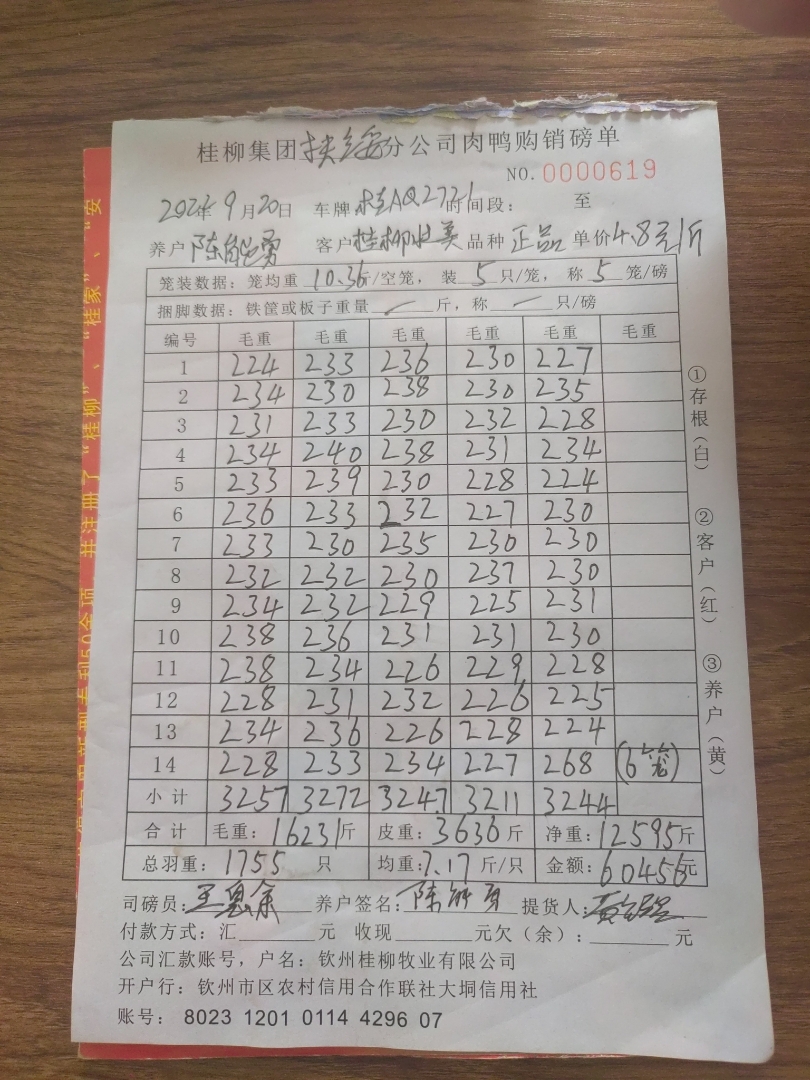 桂柳集团扶绥分公司肉鸭购销磅单
NO. 0000619
2024年9月20日 车牌:桂AQ2721 时间段: 至
养户 陈能勇 客户 桂柳壮美 品种 正品 单价 4.8元/斤
笼装数据: 笼均重 10.36斤/空笼, 装 5 只/笼, 称 5 笼/磅
捆脚数据: 铁筐或板子重量 / 斤, 称 / 只/磅
编号 毛重 毛重 毛重 毛重 毛重 毛重
1 224 233 236 230 227
2 234 230 238 230 235
3 231 233 230 232 228
4 234 240 238 231 234
5 233 239 230 228 224
6 236 233 232 227 230
7 233 230 235 230 230
8 232 232 230 237 230
9 234 232 229 225 231
10 238 236 231 231 230
11 238 234 226 229 228
12 228 231 232 226 225
13 234 236 226 228 224
14 228 233 234 227 268 (6笼)
小计 3257 3272 3247 3211 3244
合计 毛重: 16231斤 皮重: 3636斤 净重: 12595斤
总羽重: 1755 只 均重: 7.17 斤/只 金额: 60456元
司磅员: 养户签名: 陈能勇 提货人:
付款方式: 汇 元 收现 元欠(余): 元
公司汇款账号, 户名: 钦州桂柳牧业有限公司
开户行: 钦州市区农村信用合作联社大垌信用社
账号: 8023 1201 0114 4296 07
①存根(白)
②客户(红)
③养户(黄)
并注册了“桂柳”、“桂家”、“安